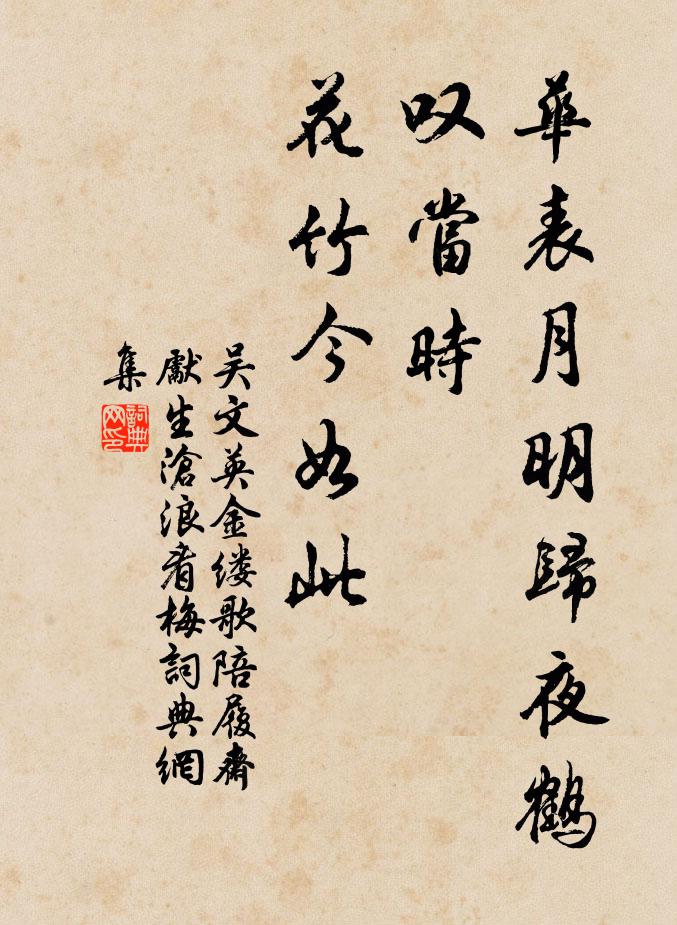 華表月明歸夜鶴
叹當時
花竹今如此
吴文英金缕歌陪履齋
獻生滄浪看梅詞典網
集
詞典
网印